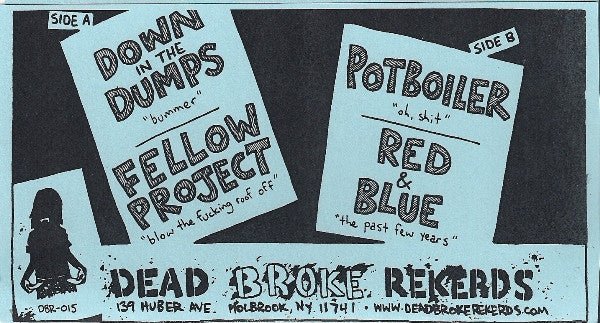 SIDE A
DOWN
IN THE
DUMPS
"bummer"
FELLOW
PROJECT
"blow the fucking roof off"
SIDE B
POTBOILER
"oh, shit"
RED
&
BLUE
"the past few years"
DBR-015
DEAD BROKE REKERDS
139 HUBER AVE. HOLBROOK, NY 11741 • WWW.DEADBROKEREKERDS.COM